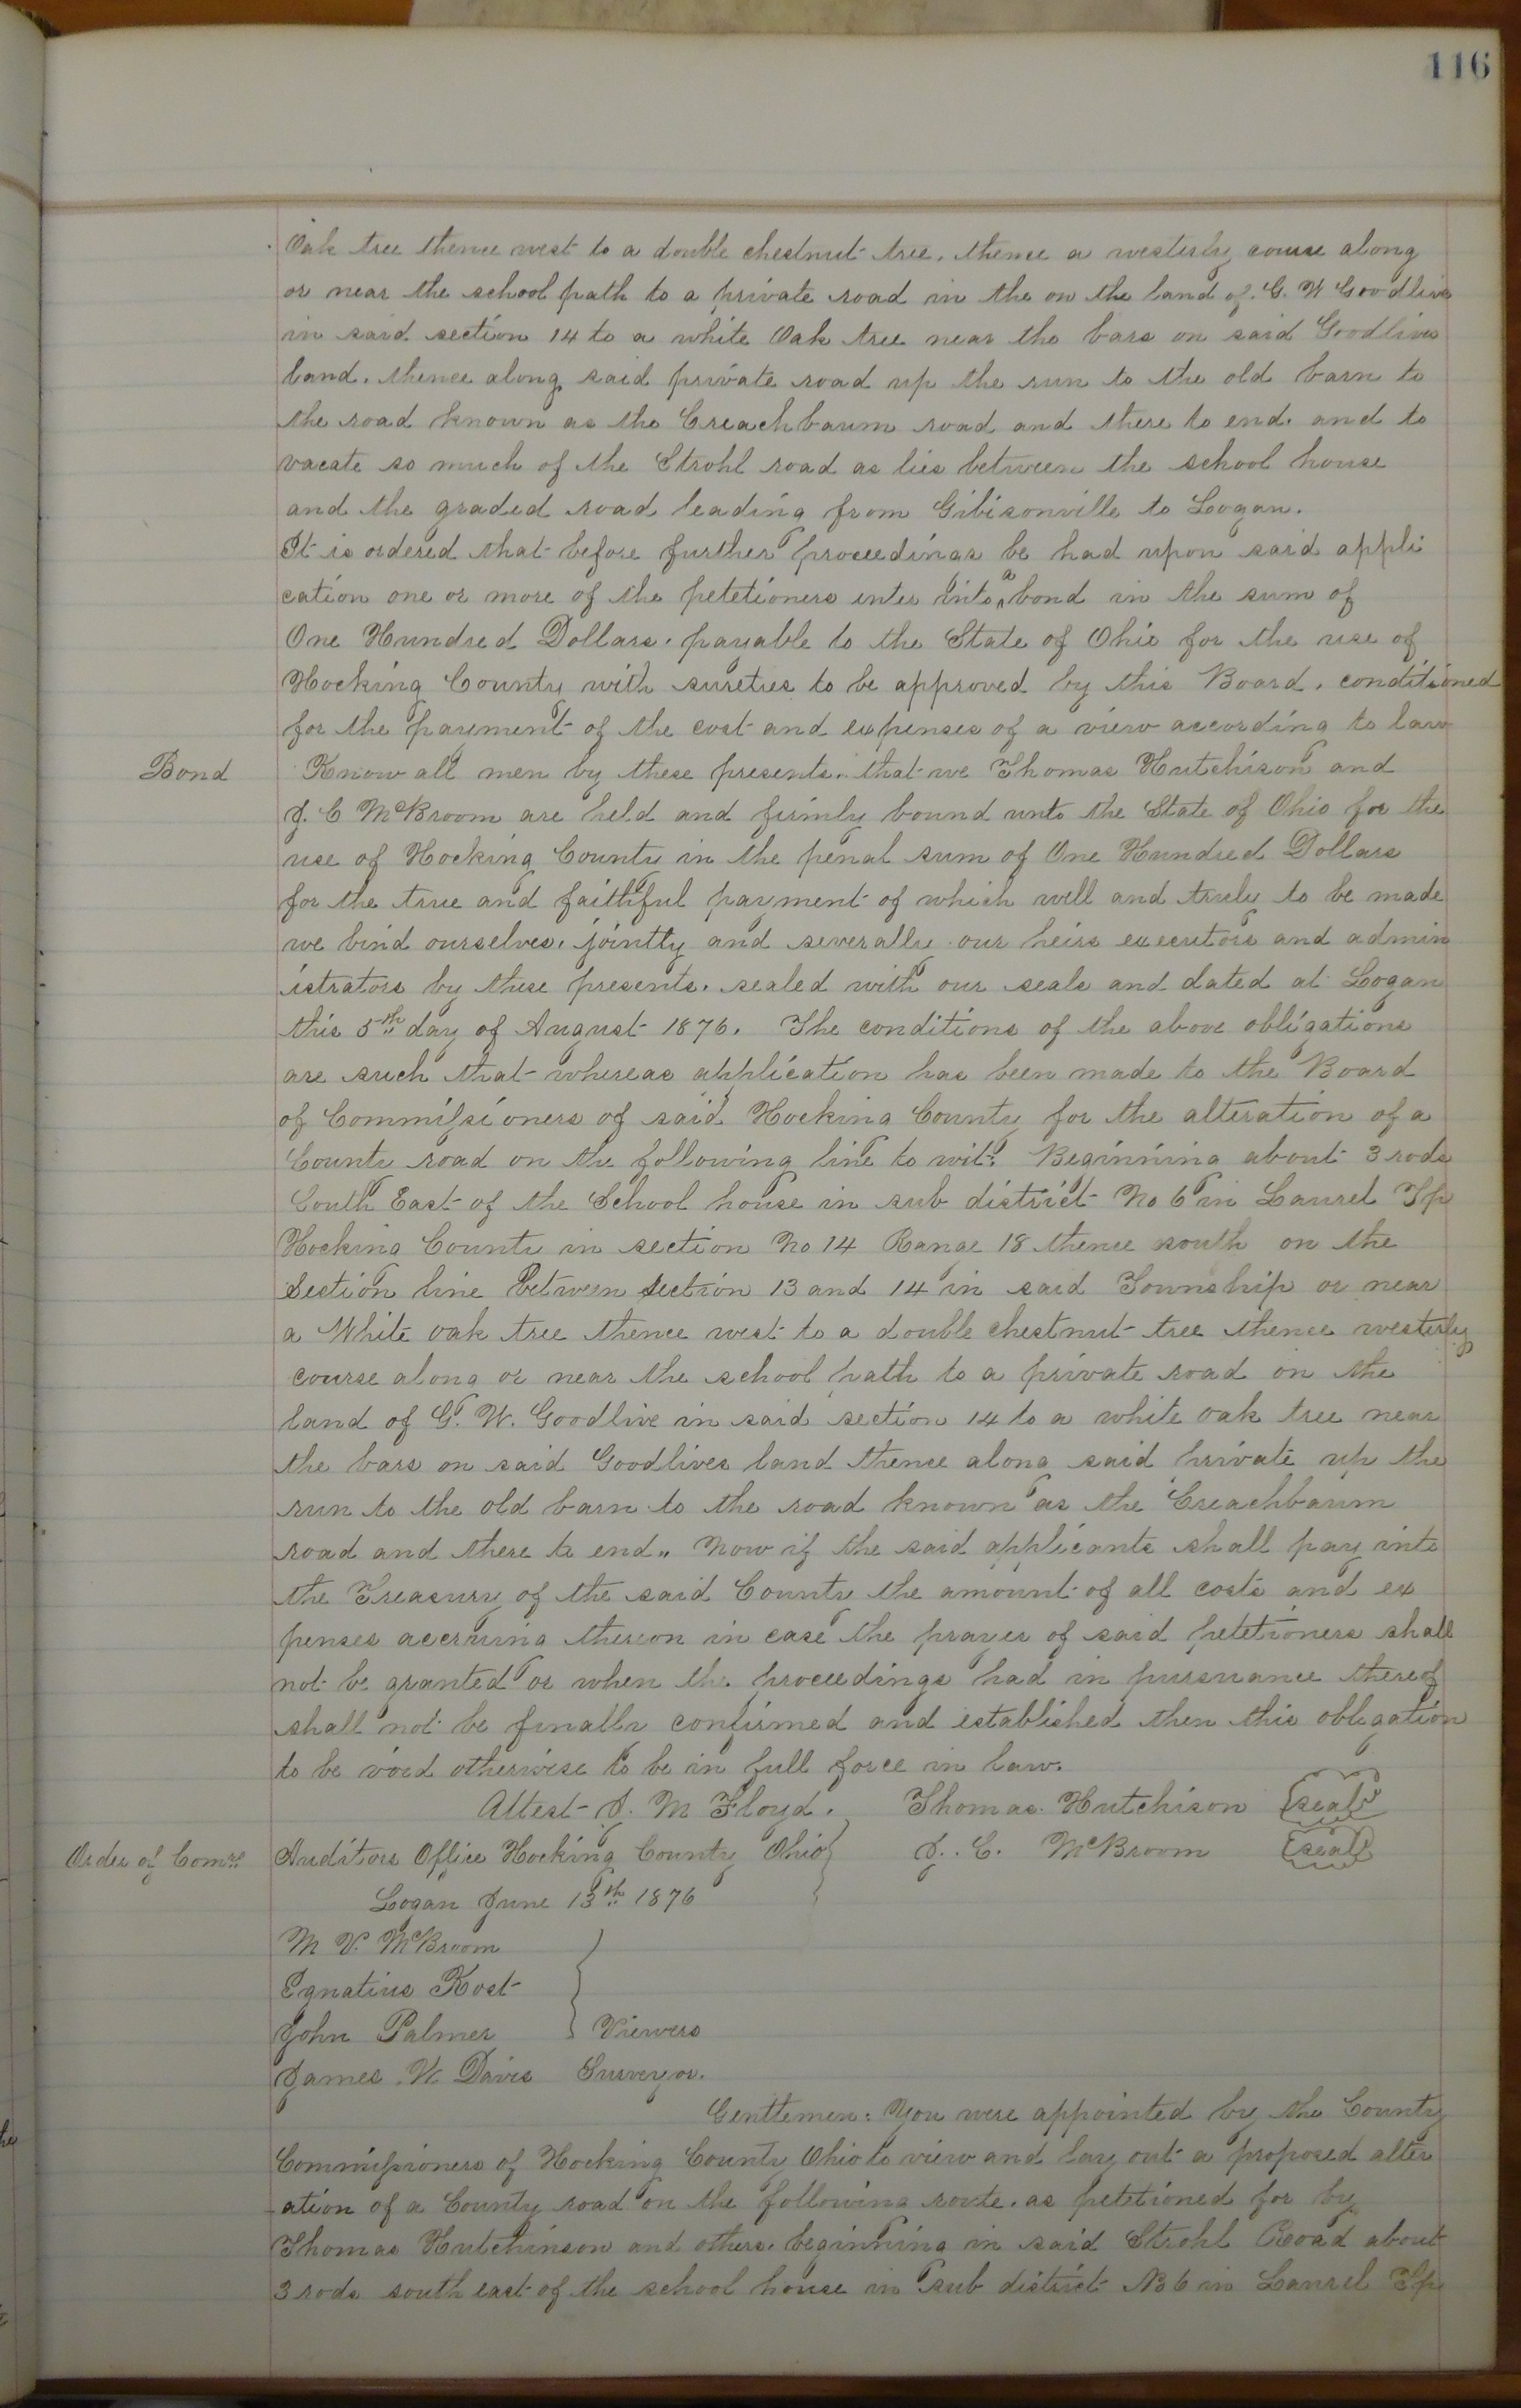 116
Oak tree thence west to a double chestnut tree. thence a westerly course along
or near the school path to a private road in the on the land of G. W Goodlive
in said section 14 to a white Oak tree near the bars on said Goodlives
land. thence along said private road up the run to the old barn to
the road known as the Creachbaum road and there to end. and to
vacate so much of the Strohl road as lies between the school house
and the graded road leading from Gibisonville to Logan.
It is ordered that before further proceedings be had upon said appli
cation one or more of the petetioners enter into a bond in the sum of
One Hundred Dollars. payable to the State of Ohio for the use of
Hocking County with sureties to be approved by this Board. conditioned
for the payment of the cost and expenses of a view according to law
Bond Know all men by these presents. that we Thomas Hutchison and
J. C McBroom are held and firmly bound unto the State of Ohio for the
use of Hocking County in the penal sum of One Hundred Dollars
for the true and faithful payment of which well and truly to be made
we bind ourselves. jointly and severally our heirs executors and admin
istrators by these presents. sealed with our seals and dated at Logan
this 5th day of August 1876. The conditions of the above obligations
are such that whereas application has been made to the Board
of Commissioners of said Hocking County for the alteration of a
County road on the following line to wit: Beginning about 3 rods
South East of the School house in sub district No 6 in Laurel Tp
Hocking County in section No 14 Range 18 thence south on the
Section line between section 13 and 14 in said Township or near
a White oak tree thence west to a double chestnut tree thence westerly
course along or near the school path to a private road on the
land of G. W. Goodlive in said section 14 to a white oak tree near
the bars on said Goodlives land thence along said private up the
run to the old barn to the road known as the Creachbaum
road and there to end„ Now if the said applicants shall pay into
the Treasury of the said County the amount of all costs and ex
penses accruing thereon in case the prayer of said petetioners shall
not be granted or when the proceedings had in pursuance thereof
shall not be finally confirmed and established then this obligation
to be void otherwise to be in full force in law.
Attest J. M Floyd. Thomas Hutchison seal
Order of Comrs Auditors Office Hocking County Ohio J. C. McBroom seal
Logan June 13th 1876
M V. McBroom
Egnatius Kost
John Palmer Viewers
James W. Davis Surveyor.
Gentlemen: You were appointed by the County
Commissioners of Hocking County Ohio to view and lay out a proposed alter
ation of a County road on the following route. as petetioned for by
Thomas Hutchinson and others. beginning in said Strohl Road about
3 rods south east of the school house in sub district No 6 in Laurel Tp